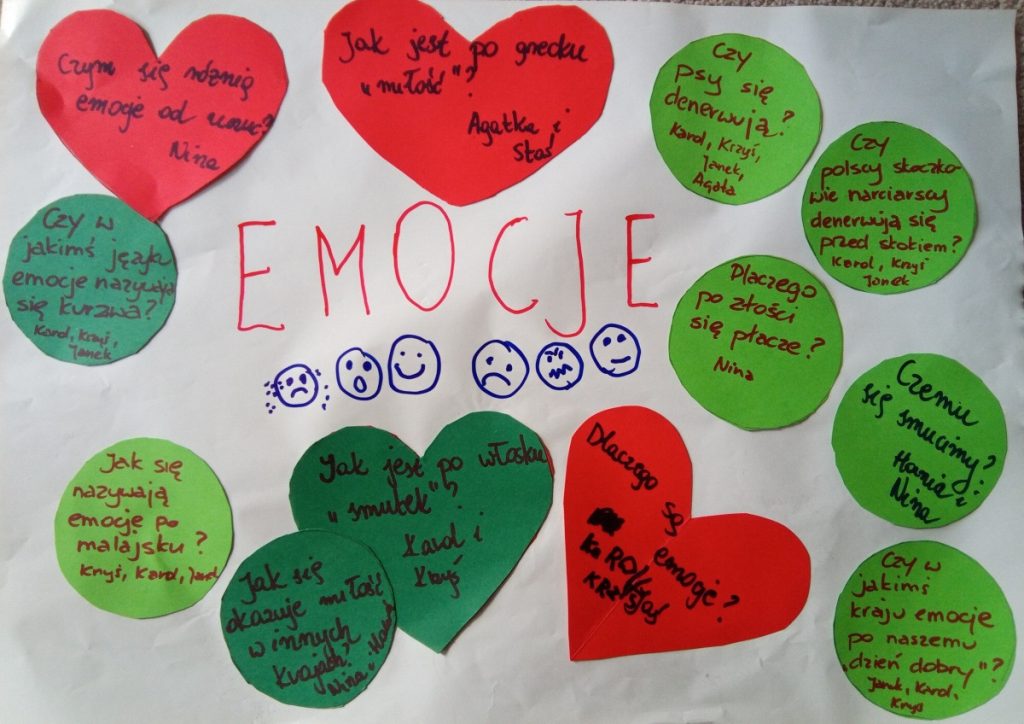 Czym się różnią
emocje od uczuć?
Nina
Jak jest po grecku
„miłość"?
Agatka i
Staś
Czy
psy się
denerwują?
Karol, Krzyś,
Janek,
Agata
Czy
polscy skoczko-
wie narciarscy
denerwują się
przed skokiem?
Karol, Krzyś
Janek
Czy w
jakimś języku
emocje nazywają
się kurzwa?
Karol, Krzyś,
Janek
EMOCJE
Dlaczego
po złości
się płacze?
Nina
Czemu
się smucimy?
Hania i
Nina
Jak się
nazywają
emocje po
malajsku?
Krzyś, Karol, Janek
Jak jest po włosku
„smutek"?
Karol i
Krzyś
Jak się
okazuje miłość
w innych
krajach?
Nina
Dlaczego są emocje?
KaROL
Czy w
jakimś
kraju emocje
po naszemu
„dzień dobry"?
Janek, Karol,
Krzyś